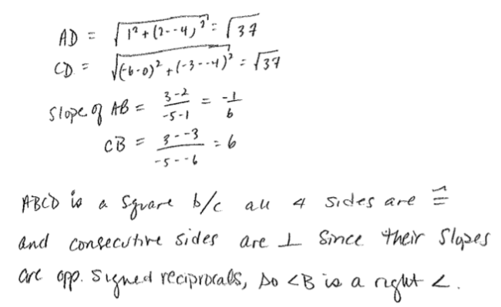 AD = √1²+(2--4)² = √37
CD = √(-6-0)²+(-3--4)² = √37
Slope of AB = 3-2/-5-1 = -1/6
CB = 3--3/-5--6 = 6
ABCD is a square b/c all 4 sides are ≅
and consecutive sides are ⊥ since their slopes
are opp. signed reciprocals, so ∠B is a right ∠.